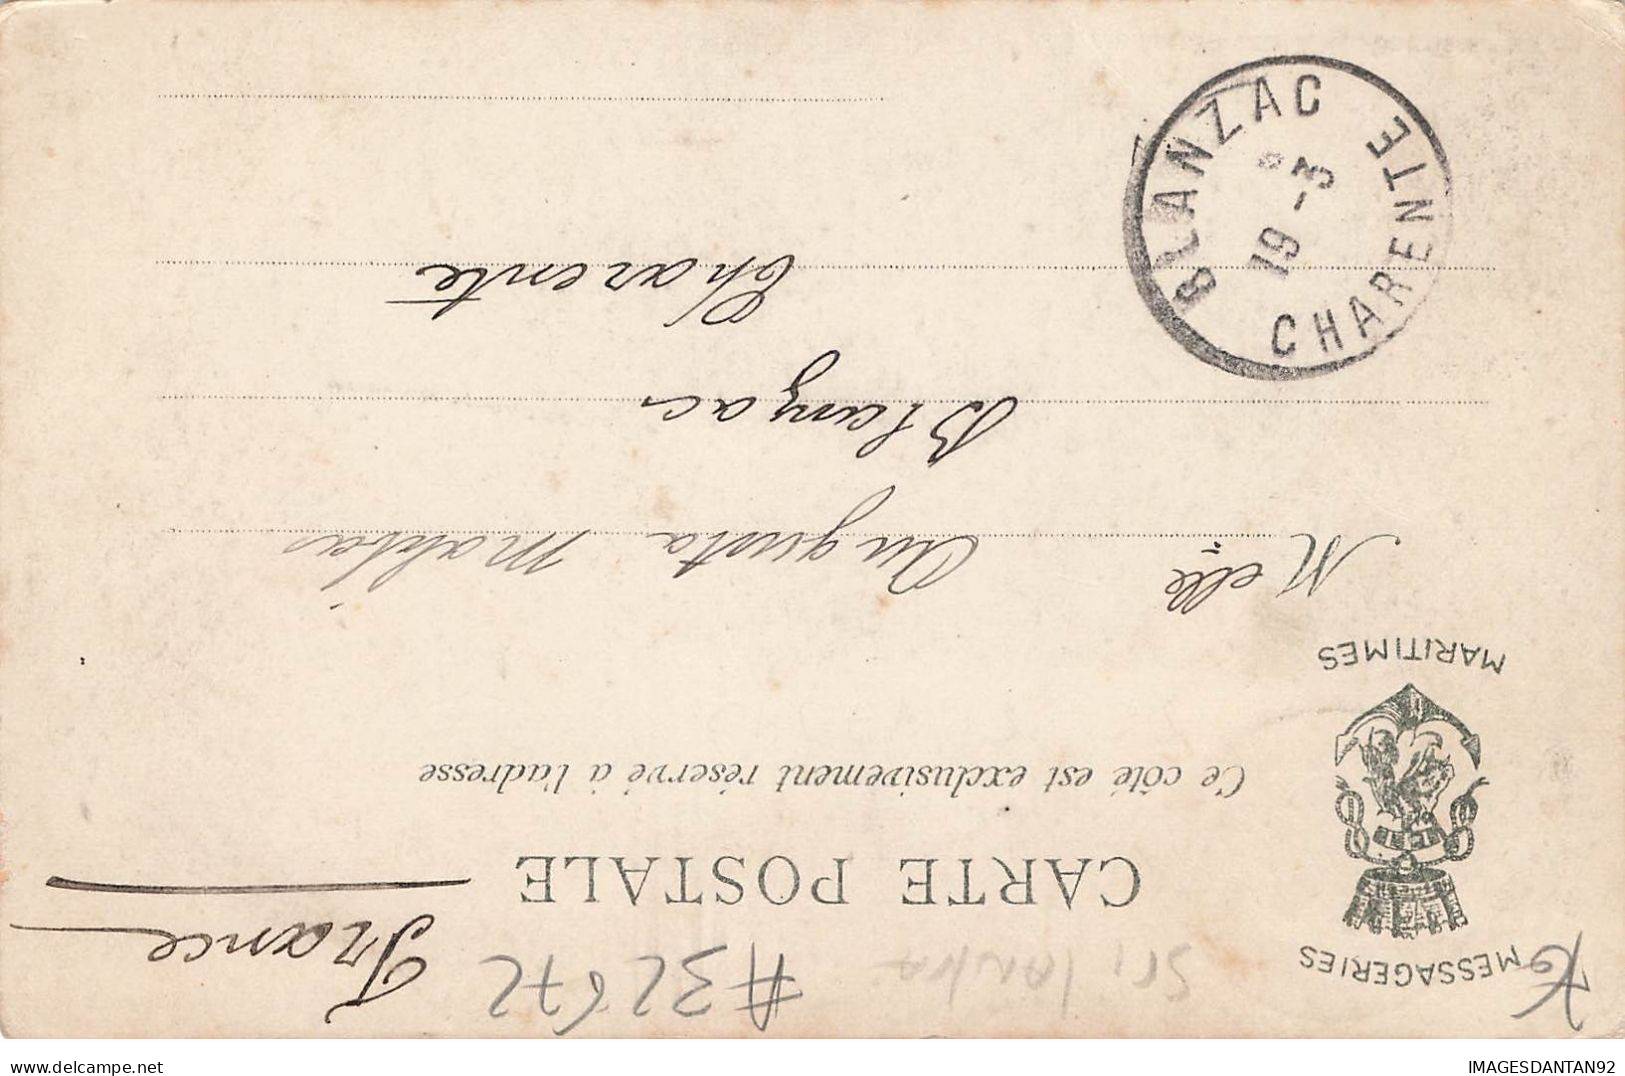 MESSAGERIES
MARITIMES
France
Sri Lanka
#32672
CARTE POSTALE
Ce côté est exclusivement réservé à l'adresse
Melle Augusta
Blanzac
Charente
BLANZAC
19 - 3
CHARENTE
IMAGESDANTAN92